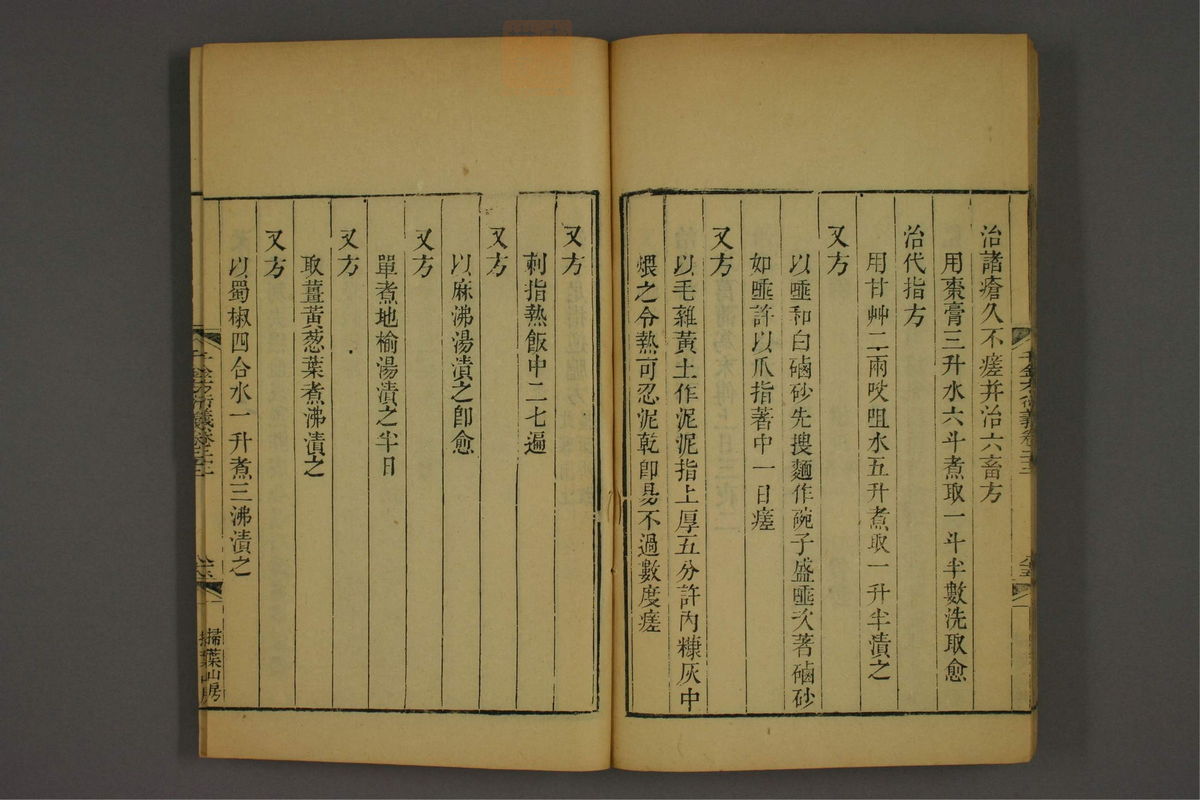 治諸瘡久不瘥并治六畜方
用棗膏三升水六斗煮取一斗半數洗取愈
治代指方
用甘艸二兩㕮咀水五升煮取一升半漬之
又方
以唾和白硇砂先搜麵作碗子盛唾次著硇砂
如唾許以爪指著中一日瘥
又方
以毛雜黃土作泥泥指上厚五分許內糠灰中
煨之令熱可忍泥乾即易不過數度瘥
又方
刺指熱飯中二七遍
又方
以麻沸湯漬之即愈
又方
單煮地榆湯漬之半日
又方
取薑黃葱葉煮沸漬之
又方
以蜀椒四合水一升煮三沸漬之
掃葉山房